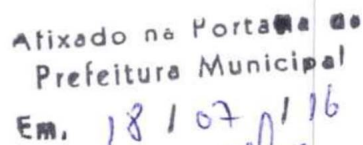 Afixado na Portaria do
Prefeitura Municipal
Em, 18 / 07 / 16